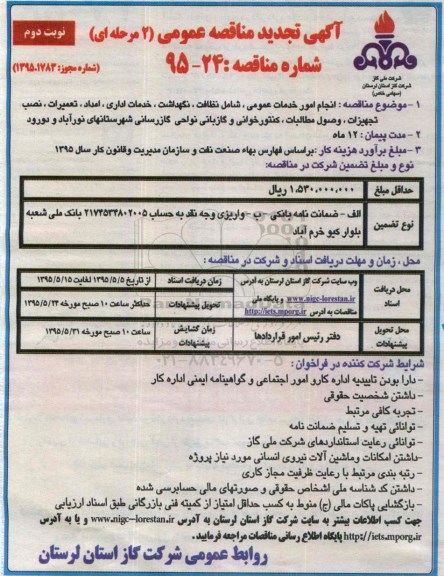 نوبت دوم
آگهی تجدید مناقصه عمومی (۲ مرحله ای)
شماره مناقصه :۲۴-۹۵
(شماره مجوز: ۱۳۹۵.۱۷۸۳)
شرکت ملی گاز
شرکت گاز استان لرستان
(سهامی خاص)
۱-موضوع مناقصه : انجام امور خدمات عمومی ، شامل نظافت ، نگهداشت ، خدمات اداری ، امداد ، تعمیرات ، نصب
تجهیزات ، وصول مطالبات ، کنتورخوانی و گازبانی نواحی گازرسانی شهرستانهای نورآباد و دورود
۲- مدت پیمان : ۱۲ ماه
۳- مبلغ برآورد هزینه کار :براساس فهارس بهاء صنعت نفت و سازمان مدیریت وقانون کار سال ۱۳۹۵
نوع و مبلغ تضمین شرکت در مناقصه:
حداقل مبلغ
۱،۵۳۰،۰۰۰،۰۰۰ ریال
نوع تضمین
الف - ضمانت نامه بانکی -ب- واریزی وجه نقد به حساب ۲۱۷۴۵۳۴۸۰۲۰۰۵ بانک ملی شعبه
بلوار کیو خرم آباد
محل ، زمان و مهلت دریافت اسناد و شرکت در مناقصه :
محل دریافت
اسناد
وب سایت شرکت گاز استان لرستان به آدرس
www.nigc-lorestan.ir و پایگاه ملی
مناقصات به آدرس http://iets.mporg.ir
زمان دریافت اسناد
از تاریخ ۱۳۹۵/۵/۵ لغایت ۱۳۹۵/۵/۱۵
تحویل پیشنهادات
حداکثر ساعت ۱۰ صبح مورخه ۱۳۹۵/۵/۲۴
محل تحویل
پیشنهادات
دفتر رئیس امور قراردادها
زمان گشایش
پیشنهادات
ساعت ۱۰ صبح مورخه ۱۳۹۵/۵/۳۱
۰۲۱-۸۸۳۴۹۶۷۰-۵
شرایط شرکت کننده در فراخوان :
- دارا بودن تاییدیه اداره کارو امور اجتماعی و گواهینامه ایمنی اداره کار
- داشتن شخصیت حقوقی
- تجربه کافی مرتبط
- توانائی تهیه و تسلیم ضمانت نامه
- توانائی رعایت استانداردهای شرکت ملی گاز
- داشتن امکانات وماشین آلات نیروی انسانی مورد نیاز پروژه
- رتبه بندی مرتبط با رعایت ظرفیت مجاز کاری
- داشتن کد شناسه ملی اشخاص حقوقی و صورتهای مالی حسابرسی شده
- بازگشایی پاکات مالی (ج) منوط به کسب حداقل امتیاز از کمیته فنی بازرگانی طبق اسناد ارزیابی
جهت کسب اطلاعات بیشتر به سایت شرکت گاز استان لرستان به آدرس www.nigc-lorestan.ir و یا به آدرس
http://iets.mporg.ir پایگاه اطلاع رسانی مناقصات مراجعه فرمایید .
روابط عمومی شرکت گاز استان لرستان